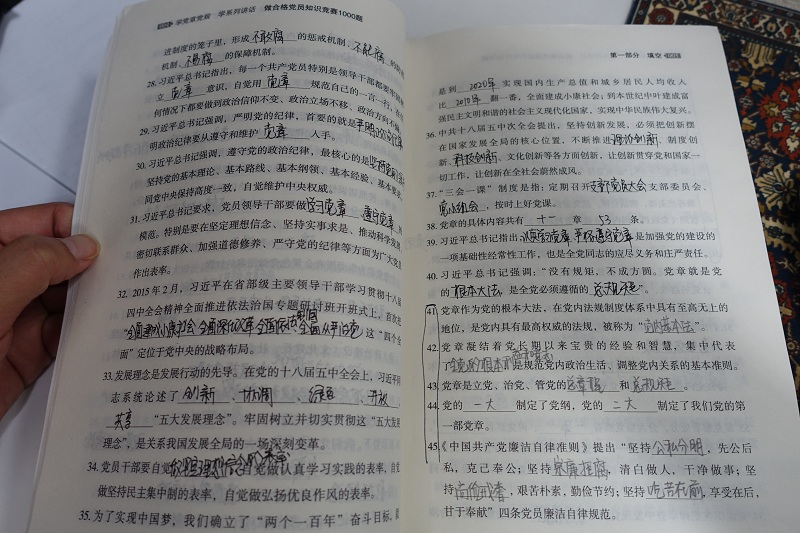 学党章党规 学系列讲话 做合格党员知识竞赛1000题
进制度的笼子里，形成 不敢腐 的惩戒机制、不能腐
机制、不易腐 的保障机制。
28. 习近平总书记指出，每一个共产党员特别是领导干部都要牢固
立 党章 意识，自觉用 党章 规范自己的一言一行，在
何情况下都要做到政治信仰不变、政治立场不移、政治方向不偏
29. 习近平总书记强调，严明党的纪律，首要的就是
明政治纪律要从遵守和维护 党章 入手。
30. 习近平总书记强调，遵守党的政治纪律，最核心的是
坚持党的基本理论、基本路线、基本纲领、基本经验、基本要求
同党中央保持高度一致，自觉维护中央权威。
31. 习近平总书记要求，党员领导干部要做 学习党章 遵守党章
模范。特别是要在坚定理想信念、坚持实事求是、推动科学发展
密切联系群众、加强道德修养、严守党的纪律等方面为广大党
作出表率。
32. 2015年2月，习近平在省部级主要领导干部学习贯彻十八届
四中全会精神全面推进依法治国专题研讨班开班式上，首次把
全面建成小康社会 全面深化改革 全面依法治国 全面从严治党 这“四个全
面”定位于党中央的战略布局。
33. 发展理念是发展行动的先导。在党的十八届五中全会上，习近平同
志系统论述了 创新 、协调 、绿色 、开放
共享 “五大发展理念”。牢固树立并切实贯彻这“五大发展
理念”，是关系我国发展全局的一场深刻变革。
34. 党员干部要自觉 做认真学习实践的表率，自觉
做坚持民主集中制的表率，自觉做弘扬优良作风的表率。
35. 为了实现中国梦，我们确立了“两个一百年”奋斗目标，
第一部分 填空
是到 2020年 实现国内生产总值和城乡居民人均收入
比 2010年 翻一番，全面建成小康社会；到本世纪中叶建成富
强民主文明和谐的社会主义现代化国家，实现中华民族伟大复兴。
36. 中共十八届五中全会提出，坚持创新发展，必须把创新摆
在国家发展全局的核心位置，不断推进 理论创新 、制度创
新、科技创新 、文化创新等各方面创新，让创新贯穿党和国家一
切工作，让创新在全社会蔚然成风。
37. “三会一课”制度是指：定期召开 支部党员大会 支部委员会、
党小组会 ，按时上好党课。
38. 党章的具体内容共有 十一 章 53 条。
39. 习近平总书记指出， 是加强党的建设的
一项基础性经常性工作，也是全党同志的应尽义务和庄严责任。
40. 习近平总书记强调：“没有规矩，不成方圆。党章就是党
的 根本大法 ，是全党必须遵循的 总规矩 。
41. 党章作为党的根本大法，在党内法规制度体系中具有至高无上的
地位，是党内具有最高权威的法规，被称为“ ”。
42. 党章凝结着党长期以来宝贵的经验和智慧，集中代表
了 是规范党内政治生活、调整党内关系的基本准则。
43. 党章是立党、治党、管党的 总章程 和 总规矩 。
44. 党的 一大 制定了党纲，党的 二大 制定了我们党的第
一部党章。
45. 《中国共产党廉洁自律准则》提出“坚持 公私分明 ，先公后
私，克己奉公；坚持 崇廉拒腐 ，清白做人、干净做事；坚
持 尚俭戒奢 ，艰苦朴素，勤俭节约；坚持 吃苦在前 ，享受在后，
甘于奉献”四条党员廉洁自律规范。